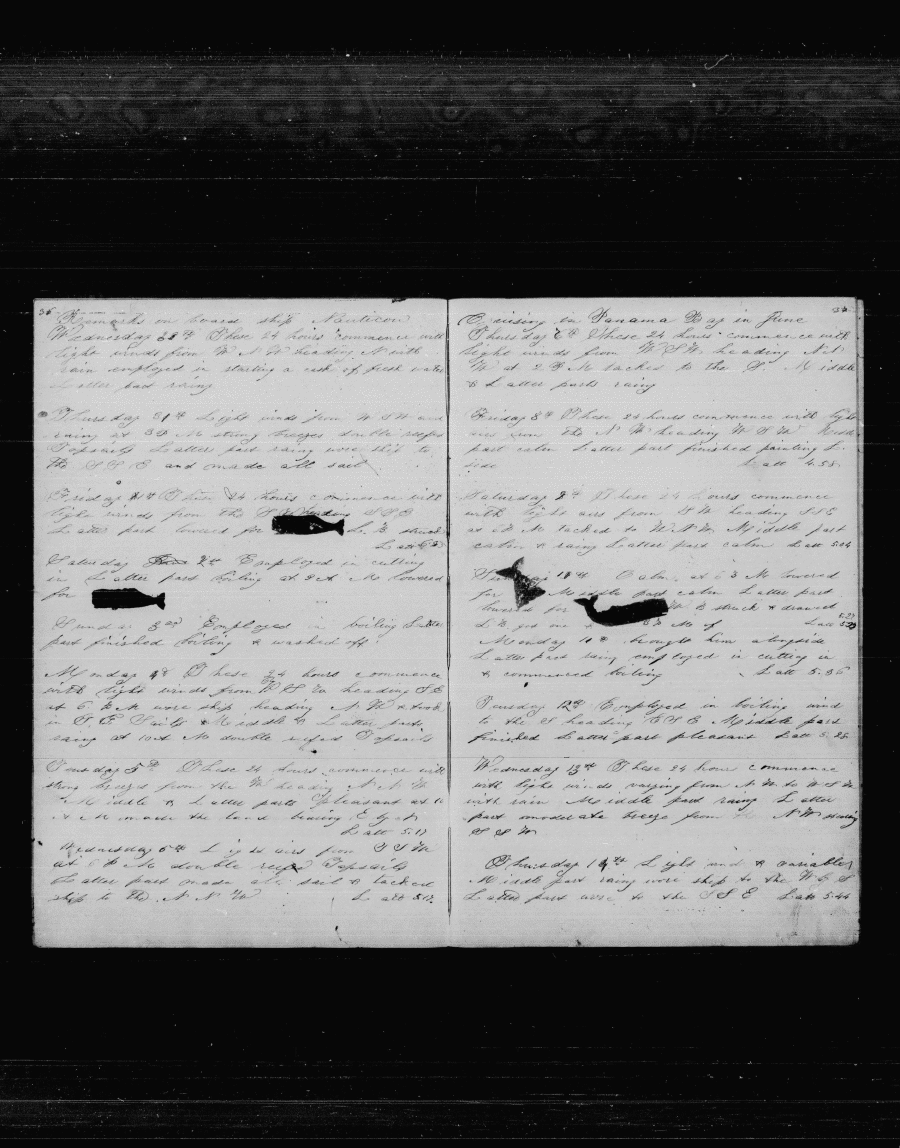 36
Remarks on board ship Nauticon
Wednesday These 24 hours commence with
light winds from W N W heading N with
rain employed in starting a cask of fresh water
Latter part rainy
Thursday 31st Light winds from W S W and
rainy at 3 P M strong breezes double reefed
Topsails Latter part rainy wore ship to
the S S E and made all sail
Friday 1st These 24 hours commence with
light winds from the heading S S E
Latter part lowered for L. B. struck
Latt
Saturday 2nd Employed in cutting
in Latter part boiling at 9 A M lowered
for
Sunday 3rd Employed in boiling Latter
part finished boiling & washed off
Monday 4th These 24 hours commence
with light winds from W S W heading S E
at 6 P M wore ship heading N W & took
in T. G Sails Middle & Latter parts
rainy at 10 A M double reefed Topsails
Tuesday 5th These 24 hours commence with
strong breezes from the W heading N N W
Middle & Latter parts pleasant at 10
A M made the land bearing E by N
Latt 5.17
Wednesday 6th Light airs from S S W
at 6 P M double reefed Topsails
Latter part made all sail & tacked
ship to the N N W Latt 5.12
Cruising in Panama Bay in June
Thursday These 24 hours commence with
light winds from W S W heading
W at 2 P M tacked to the S. Middle
& Latter parts rainy
Friday 8th These 24 hours commence with light
airs from the N W heading W S W Middle
part calm Latter part finished painting L.
side Latt 4.58
Saturday 9th These 24 hours commence
with light airs from S W heading S S E
at 6 P M tacked to W N W. Middle part
calm & rainy Latter part calm Latt 5.24
Sunday 10th Calm, at 3 P M lowered
for Middle part calm Latter part
lowered for W B struck & drawed
L B got one Latt
Monday 11 brought him alongside
Latter part rainy employed in cutting in
& commenced boiling Latt 5.36
Tuesday 12th Employed in boiling wind
to the S heading E S E Middle part
finished Latter part pleasant Latt 5.28
Wednesday 13th These 24 hour commence
with light winds varying from N W to W S W
with rain Middle part rainy Latter
part moderate breeze from the N W steering
S S W
Thursday 14th Light wind & variable
Middle part rainy wore ship to the W by S
Latter part wore to the S S E Latt 5.44